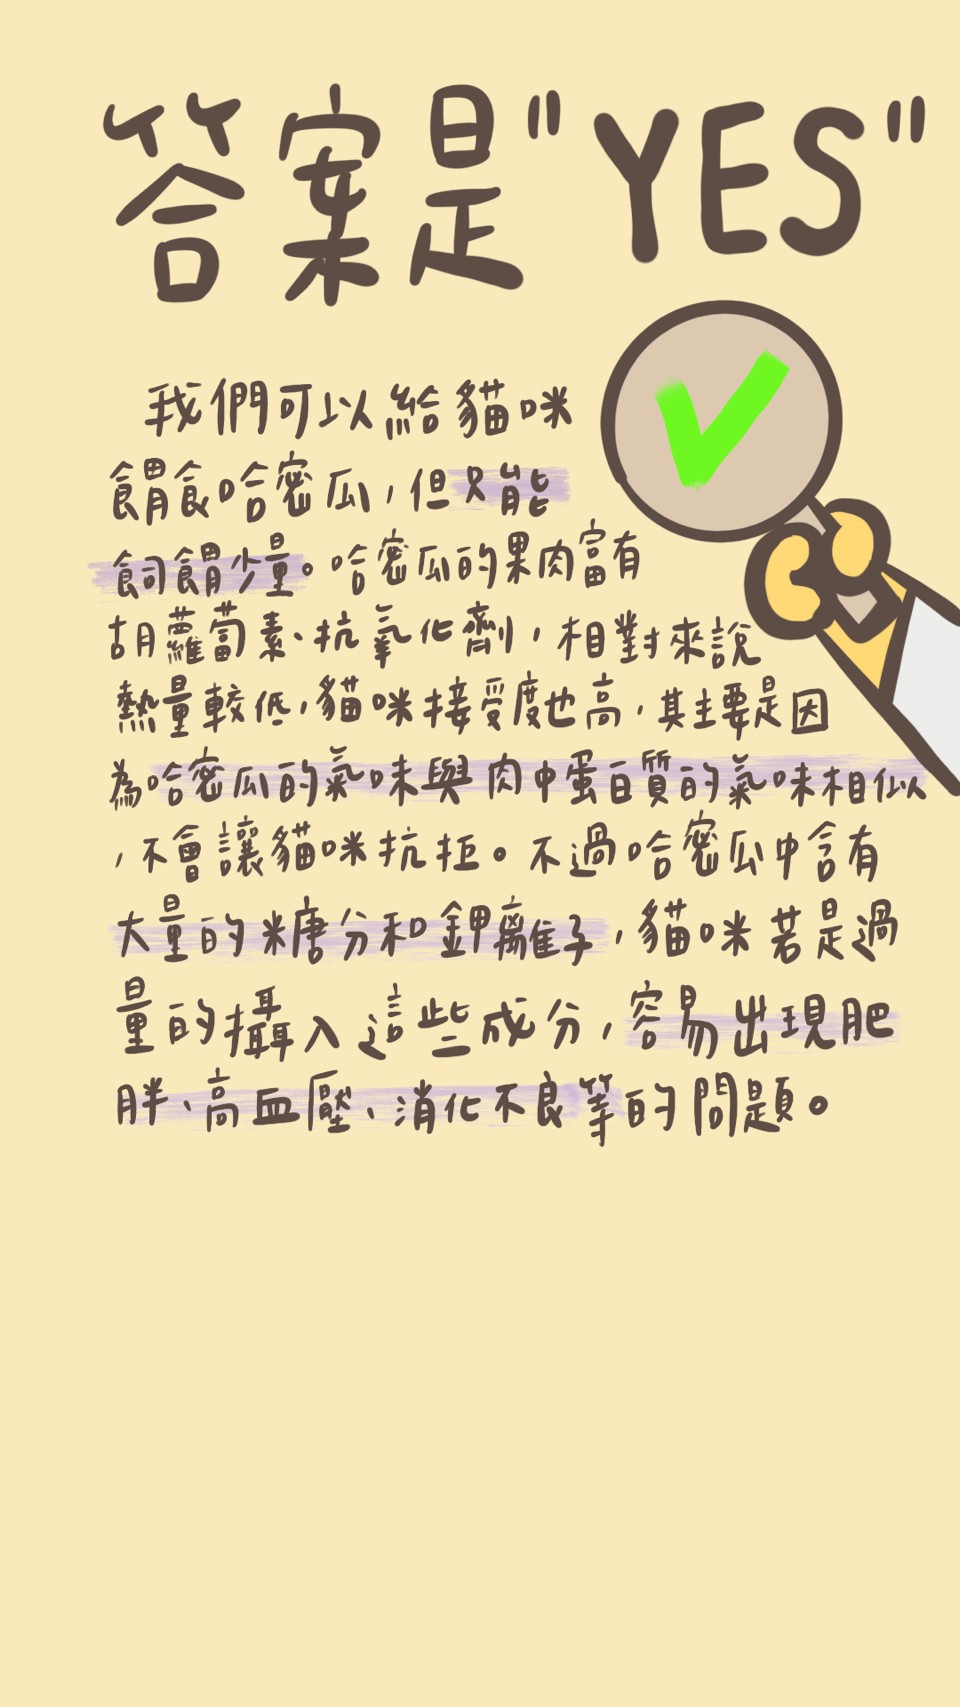 答案是"YES"
我們可以給貓咪
餵食哈密瓜,但只能
飼餵少量。哈密瓜的果肉富有
胡蘿蔔素、抗氧化劑,相對來說
熱量較低,貓咪接受度也高,其主要是因
為哈密瓜的氣味與肉中蛋白質的氣味相似
,不會讓貓咪抗拒。不過哈密瓜中含有
大量的糖分和鉀離子,貓咪若是過
量的攝入這些成分,容易出現肥
胖、高血壓、消化不良等的問題。